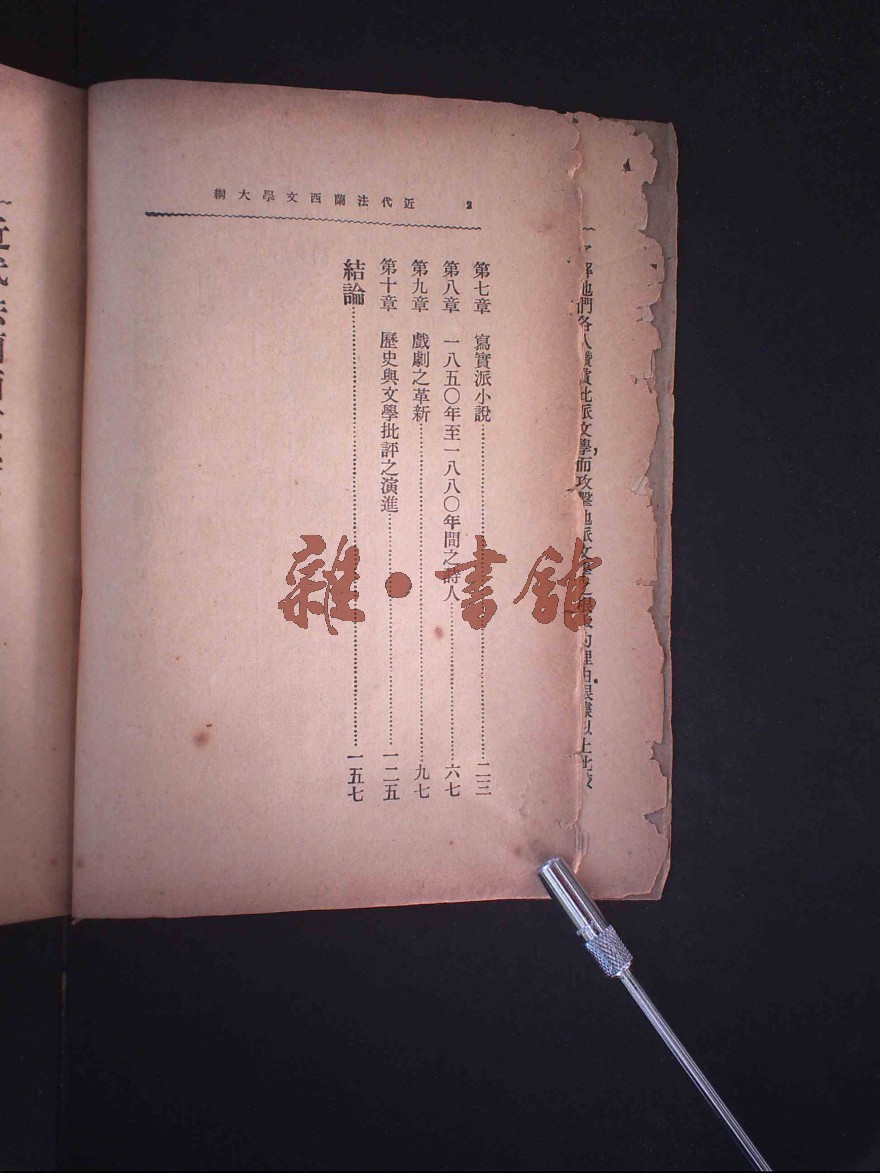 近代法蘭西文學大綱 2
第七章 寫實派小說……二三
第八章 一八五〇年至一八八〇年間之詩人……六七
第九章 戲劇之革新……九七
第十章 歷史與文學批評之演進……一二五
結論……一五七
雜·書館
們各人讚賞此派文學,而攻擊他派文學之